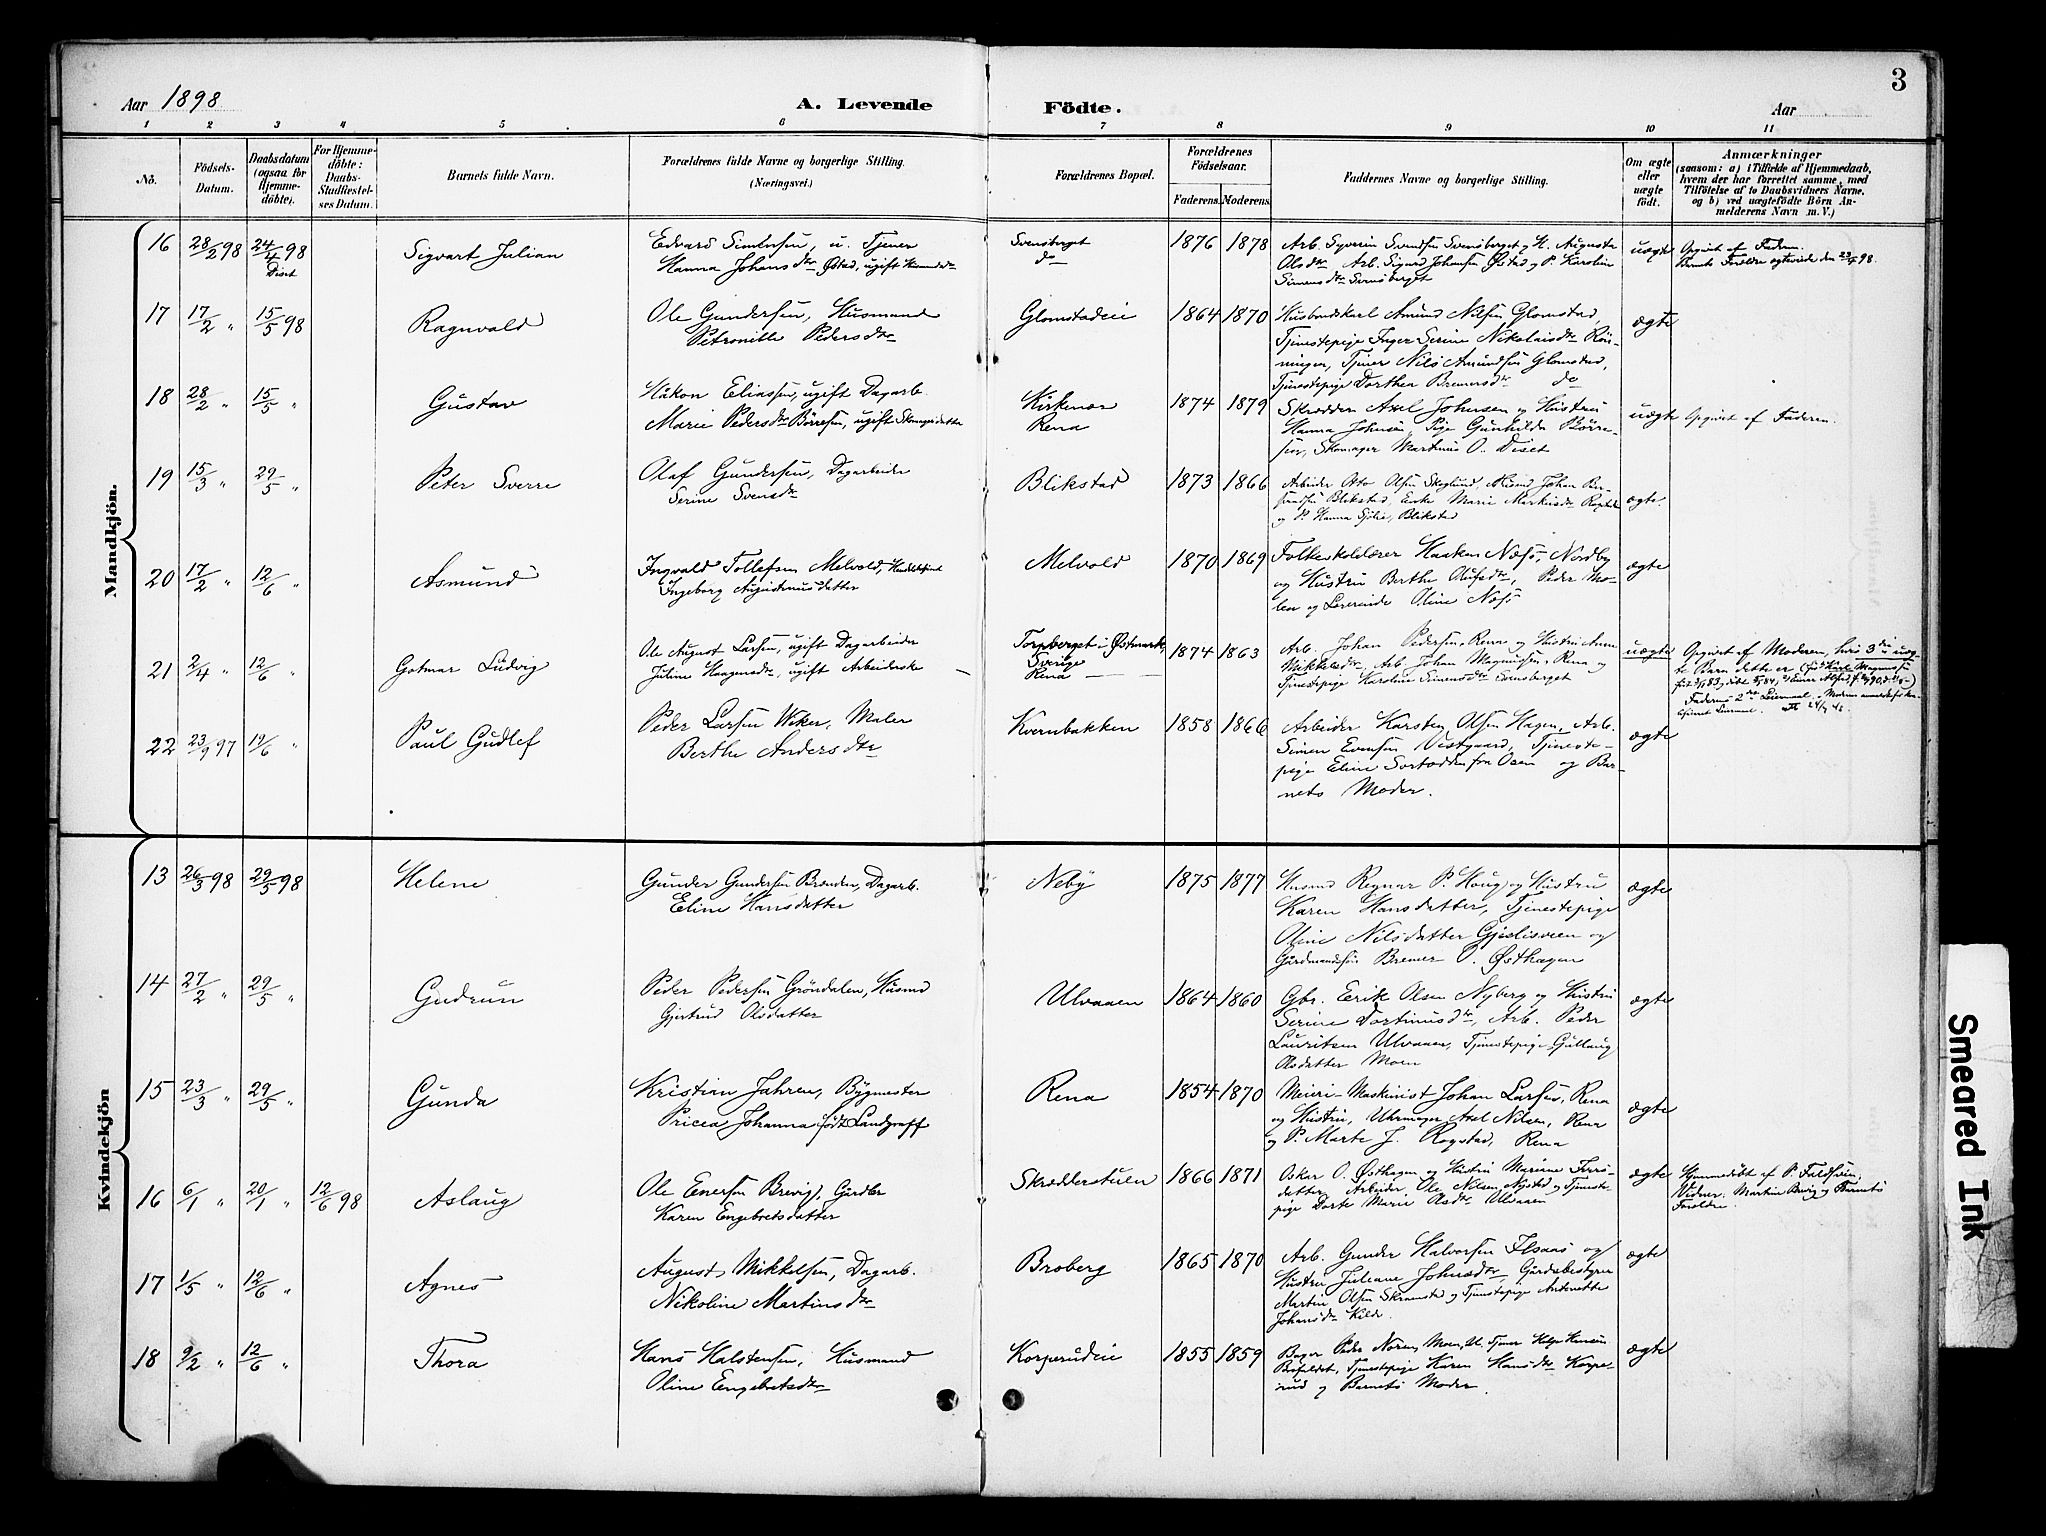 3
Aar 1898
A. Levende
Födte.
Aar
1 2 3 4 5 6 7 8 9 10 11
No.
Födsels-Datum.
Daabsdatum (ogsaa for Hjemmedöbte).
For Hjemmedöbte: Daabs-Stadfæstelses Datum.
Barnets fulde Navn.
Forældrenes fulde Navne og borgerlige Stilling.
(Næringsvei.)
Forældrenes Bopæl.
Forældrenes Födselsaar.
Faderens. Moderens.
Faddernes Navne og borgerlige Stilling.
Om ægte eller uægte födt.
Anmærkninger
(saasom: a) i Tilfælde af Hjemmedaab,
hvem der har forrettet samme, med
Tilföielse af to Daabsvidners Navne,
og b) ved uægtefödte Börn An-
melderens Navn m. V.)
Mandkjön.
16 28/2 98 24/4 98 Diset
Sigvart Julian
Edvard Simensen, u. Tjener
Hanna Johansdtr Østad, ugift
Svensberget
do
1876 1878
Arb. Syverin Svendsen Svensberget og H. Augusta
Olsdtr Arb. Sigurd Johansen Østad og P. Karoline
Simensdtr Svensberget
uægte
Opgivet af Faderen.
Barnets Forældre ægteviede den 23/4 98.
17 17/2 " 15/5 98
Ragnvald
Ole Gundersen, Husmand
Petronille Pedersdtr
Glomstadeie
1864 1870
Husbondskarl Amund Nilsen Glomstad,
Tjenestepige Inger Serine Nikolaisdtr Røn-
ningen, Tjener Nils Amundsen Glomstad,
Tjenestepige Dorthea Bremersdtr do
ægte
18 28/2 " 15/5 "
Gustav
Håkon Eliassen, ugift Dagarb.
Marie Pedersdtr Børresen, ugift Skomagerdatter
Kirkenær
Rena
1874 1879
Skrædder Axel Johnsen og Hustru
Hanna Johnsen, Pige Gunhilda Børre-
sen, Skomager Martinus O. Diset
uægte
Opgivet af Faderen.
19 15/3 " 29/5 "
Peter Sverre
Olaf Gundersen, Dagarbeider
Serine Svensdtr
Blikstad
1873 1866
Arbeider Otto Olsen Skoglund, Husmd Johan Ber-
Blikstad, Enke Marie
og P. Hanna Sjølie, Blikstad
ægte.
20 17/2 " 12/6 "
Asmund
Ingvald Tollefsen Melvold,
Ingeborg Augustinusdatter
Melvold
1870 1869
Folkeskolelærer Haaken Næss, Nordby
og Hustru Berthe Olufsdtr, Peder Mo-
len og Lærerinde Oline Næss
ægte
21 2/4 " 12/6 "
Gotmar Ludvig
Ole August Larsen, ugift Dagarbeider
Juline Haagensdtr, ugift Arbeiderske
Torpberget i Østmark,
Sverige
Rena
1874 1863
Arb. Johan Pedersen, Rena og Hustru Anne
Mikkelsdtr, Arb Johan Magnussen, Rena og
Tjenestepige Karoline Simensdtr Svensberget
uægte
Opgivet af Moderen, hvis 3die uæg-
te Barn dette er
Faderens 2det Leiermaal.
22 23/9 97 19/6 "
Paul Gudlef
Peder Larsen Weker, Maler
Berthe Andersdtr
Kvernbakken
1858 1866
Arbeider Karsten Olsen Hagen, Arb.
Simen Evensen Vestgaard, Tjeneste-
pige Eline Sortodden fra Osen og Bar-
nets Moder.
ægte
Kvindekjön
13 26/3 98 29/5 98
Helene
Gunder Gundersen Brænden, Dagarb.
Eline Hansdatter
Neby
1875 1877
Husmd Regnar P. Houg og Hustru
Karen Hansdatter, Tjenestepige
Oline Nilsdatter Gjeslisveen og
Gårdmandssøn Bremer O. Østhagen
ægte
14 27/2 " 29/5 "
Gudrun
Peder Pedersen Grøndalen, Husmd
Gjertrud Olsdatter
Ulvaaen
1864 1860
Gbr. Erik Olsen Nyberg og Hustru
Serine Dortinusdtr, Arb. Peder
Lauritsen Ulvaaen, Tjenestepige Gullaug
Olsdatter Moen
ægte
15 23/3 " 29/5 "
Gunda
Kristian Jahren, Bygmester
Pricea Johanna født Landgraff
Rena
1854 1870
Meieri-Maskinist Johan Larsen, Rena
og Hustru, Uhrmager Axel Nilsen, Rena
og P. Marte J. Rogstad, Rena
ægte
16 6/1 " 20/1 " 12/6 98
Aslaug
Ole Enersen Brevig, Gårdbr
Karen Engebretsdatter
Skrædderstuen
1866 1871
Oskar O. Østhagen og Hustru Mariane
Arbeider Ole Nilsen, Nystad og Tjeneste-
pige Dorte Marie Olsdtr Ulvaaen
ægte
Hjemmedøbt af P. Feldseim,
Vidner: Martin Brevig og Barnets
Forældre.
17 1/5 " 12/6 "
Agnes
August Mikkelsen, Dagarb.
Nikoline Martinsdtr
Broberg
1865 1870
Arb. Gunder Halvorsen Ilsaas og
Hustru Juliane Johnsdtr, Gårdsbestyrer
Martin Olsen Skramstad og Tjenestepige Antonette
Johansdtr Kilde.
ægte
18 9/2 " 12/6 "
Thora
Hans Halstensen, Husmand
Oline Engebretsdtr
Korperudeie
1855 1859
Bager Peder Noren, Moen, U. Tjener Helge Hansen
Tjenestepige Karen Hansdtr Korpe-
rud og Barnets Moder.
ægte
Smeared Ink